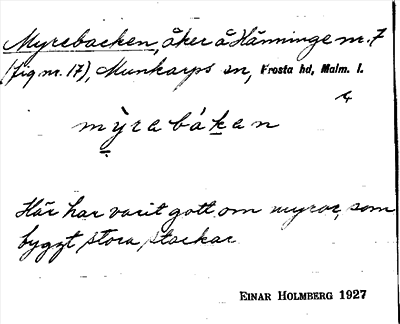 Myrebacken, åker å Hänninge nr. 7
(fig nr. 17), Munkarps sn, Frosta hd, Malm. l.
my̆rabákan
Här har varit gott om myror, som
byggt stora stackar.
EINAR HOLMBERG 1927